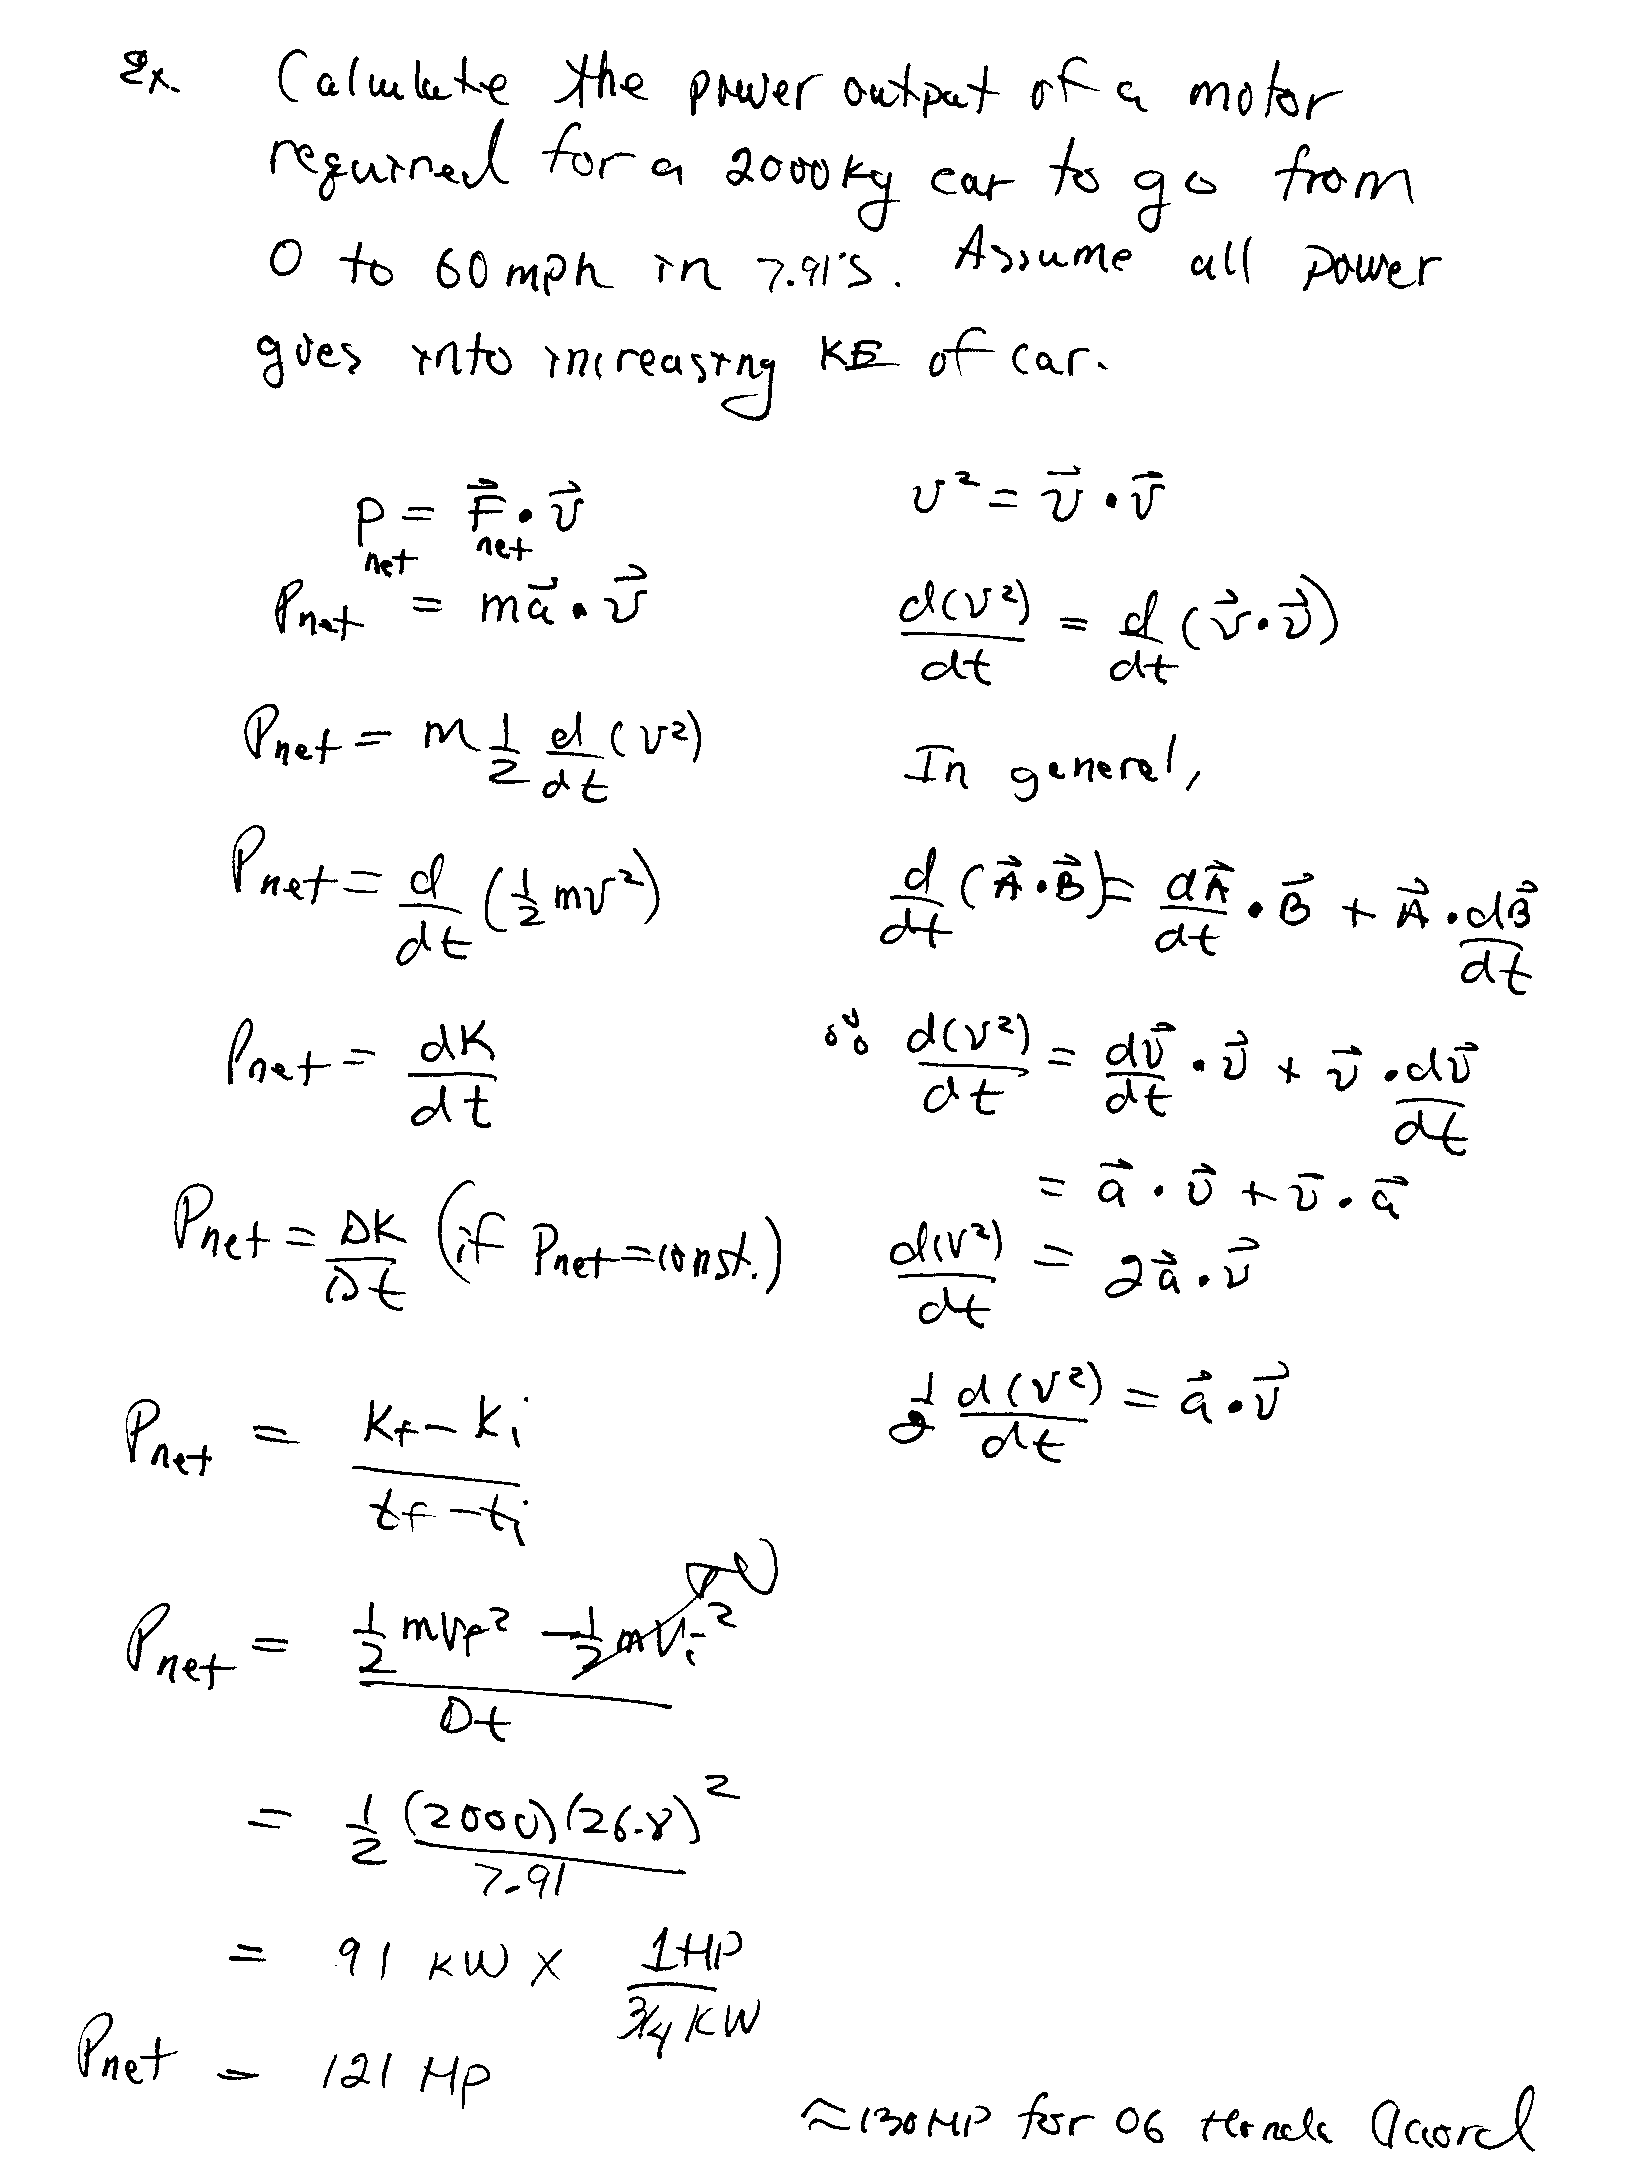 Ex. Calculate the power output of a motor
required for a 2000kg car to go from
0 to 60 mph in 7.91 s. Assume all power
goes into increasing KE of car.
P_net = F⃗_net • v⃗
P_net = ma⃗ • v⃗
P_net = m 1/2 d/dt (v²)
P_net = d/dt (1/2 mv²)
P_net = dK/dt
P_net = ΔK/Δt (if P_net = const.)
P_net = (K_f − K_i)/(t_f − t_i)
P_net = (1/2 mv_f² − 1/2 mv_i²)/Δt → 0
= 1/2 (2000)(26.8)²/7.91
= 91 KW × 1HP/(3/4 KW)
P_net = 121 HP
v² = v⃗ • v⃗
d(v²)/dt = d/dt (v⃗ • v⃗)
In general,
d/dt (A⃗ • B⃗) = dA⃗/dt • B⃗ + A⃗ • dB⃗/dt
∴ d(v²)/dt = dv⃗/dt • v⃗ + v⃗ • dv⃗/dt
= a⃗ • v⃗ + v⃗ • a⃗
d(v²)/dt = 2a⃗ • v⃗
1/2 d(v²)/dt = a⃗ • v⃗
≈130 HP for 06 Honda Accord